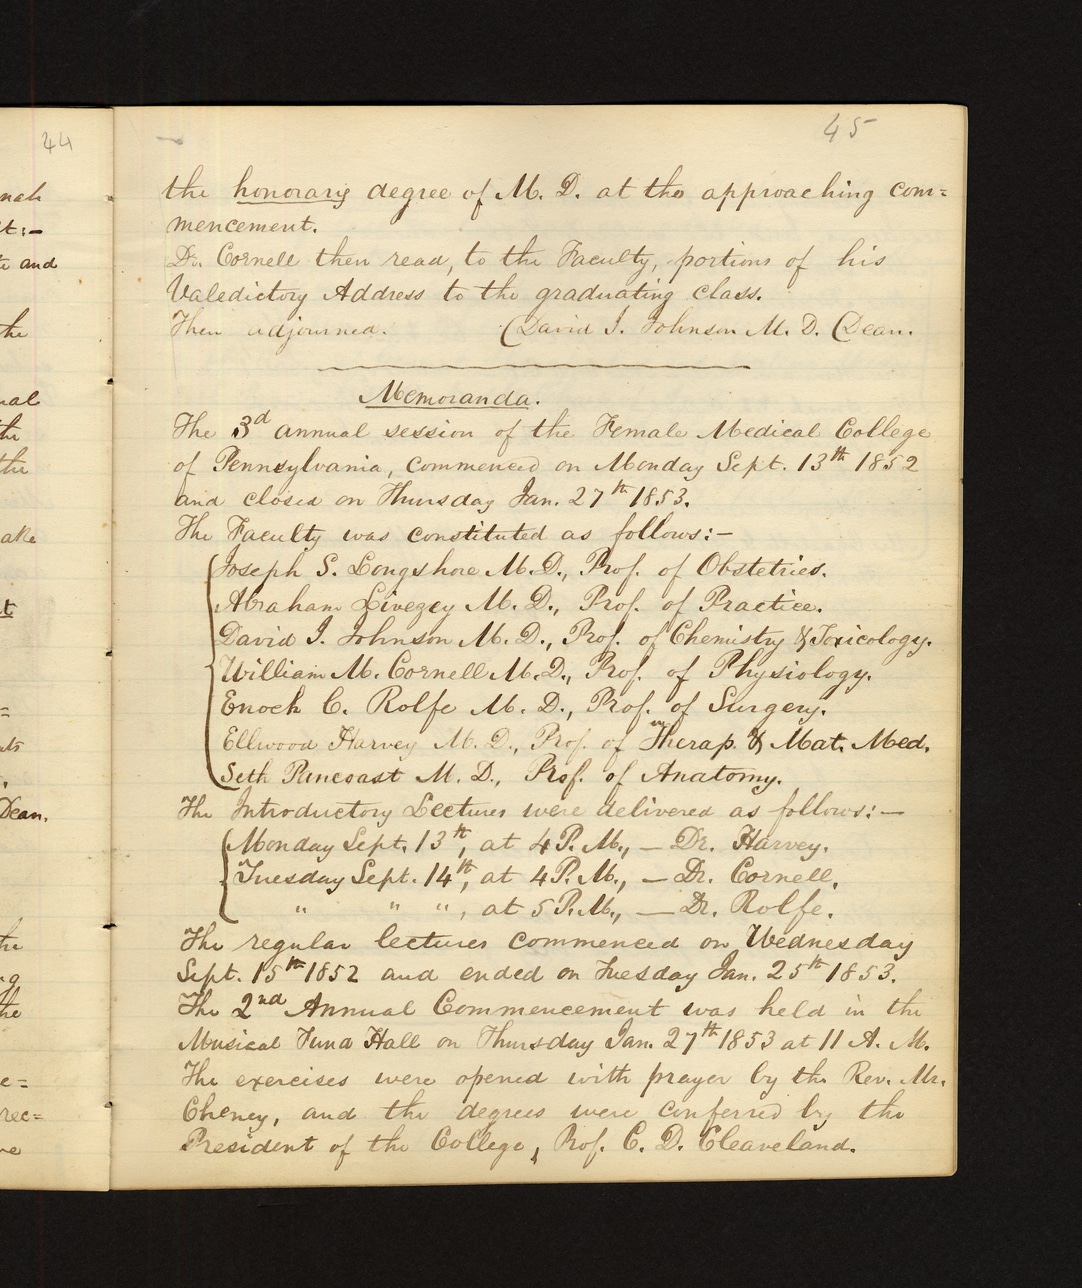 44
45
nah
t:-
te and
the
nal
the
the
ake
t
=
ats
Dean.
the
ng
the
e=
rec=
ve
the honorary degree of M. D. at the approaching com=
mencement.
Dr. Cornell then read, to the Faculty, portions of his
Valedictory Address to the graduating class.
Then adjourned. (David J. Johnson M. D. (Dean.
Memoranda.
The 3d annual session of the Female Medical College
of Pennsylvania, commenced on Monday Sept. 13th 1852
and closed on Thursday Jan. 27th 1853.
The Faculty was constituted as follows:-
Joseph S. Longshore M.D., Prof. of Obstetrics.
Abraham Livezey M. D., Prof. of Practice.
David J. Johnson M. D., Prof. of Chemistry & Toxicology.
William M. Cornell M.D., Prof. of Physiology.
Enoch C. Rolfe M. D., Prof. of Surgery.
Ellwood Harvey M. D., Prof. of Therap. & Mat. Med.
Seth Pancoast M. D., Prof. of Anatomy.
The Introductory Lectures were delivered as follows:-
Monday Sept. 13th, at 4 P. M., - Dr. Harvey.
Tuesday Sept. 14th, at 4 P. M., - Dr. Cornell.
" " ", at 5 P. M., - Dr. Rolfe.
The regular lectures commenced on Wednesday
Sept. 15th 1852 and ended on Tuesday Jan. 25th 1853.
The 2nd Annual Commencement was held in the
Musical Fund Hall on Thursday Jan. 27th 1853 at 11 A. M.
The exercises were opened with prayer by the Rev. Mr.
Cheney, and the degrees were conferred by the
President of the College, Prof. C. D. Cleaveland.